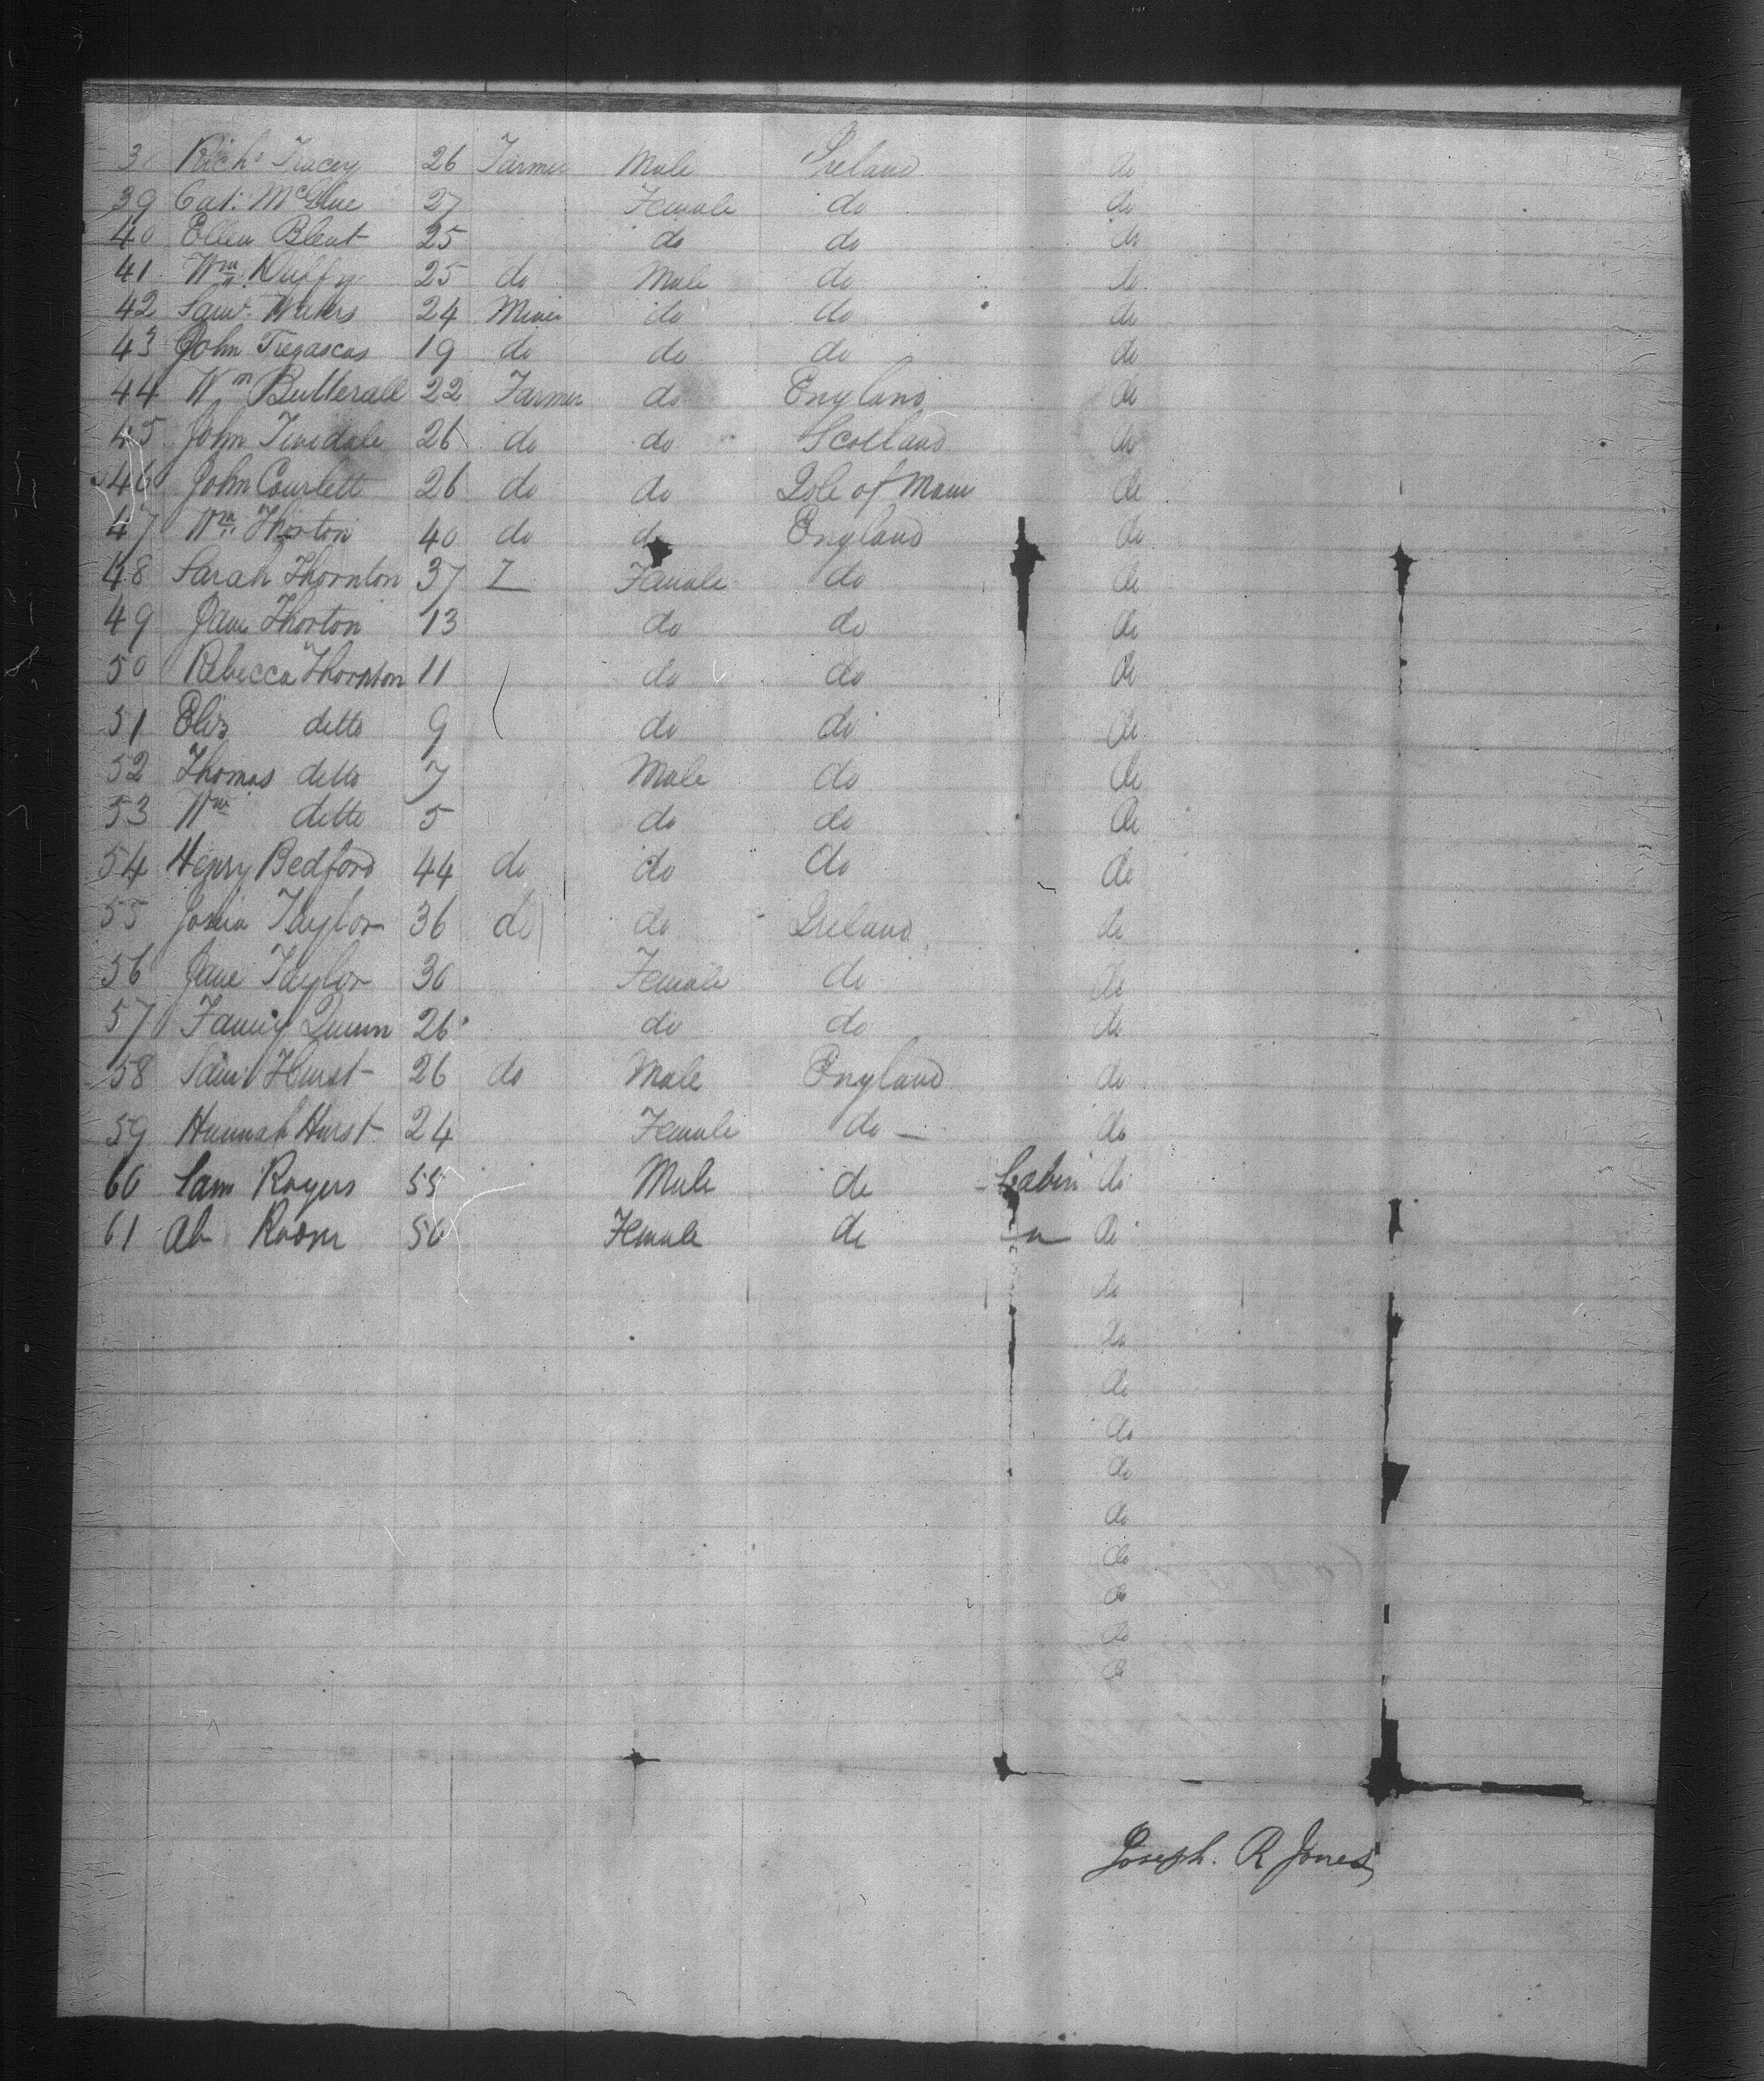 38 Rich^d Tracey 26 Farmer Male Ireland do
39 Cat: McGlue 27 Female do do
40 Ellen Blent 25 do do do
41 Wm Duffy 25 do Male do do
42 Saml Waters 24 Miner do do do
43 John Tregascas 19 do do do do
44 Wm Butterall 22 Farmer do England do
45 John Tinsdale 26 do do Scotland do
46 John Courlett 26 do do Isle of Man do
47 Wm Thorton 40 do do England do
48 Sarah Thornton 37 Female do do
49 Jane Thorton 13 do do do
50 Rebecca Thornton 11 do do do
51 Eliz ditto 9 do do do
52 Thomas ditto 7 Male do do
53 Wm ditto 5 do do do
54 Henry Bedford 44 do do do do
55 Josia Taylor 36 do do Ireland do
56 Jane Taylor 30 Female do do
57 Fanny Quinn 26 do do do
58 Saml Hurst 26 do Male England do
59 Hannah Hurst 24 Female do — do
60 Sam Rogers 55 Male do Cabin do
61 50 Female do do
do
do
do
do
do
do
do
do
do
do
Joseph. R Jones